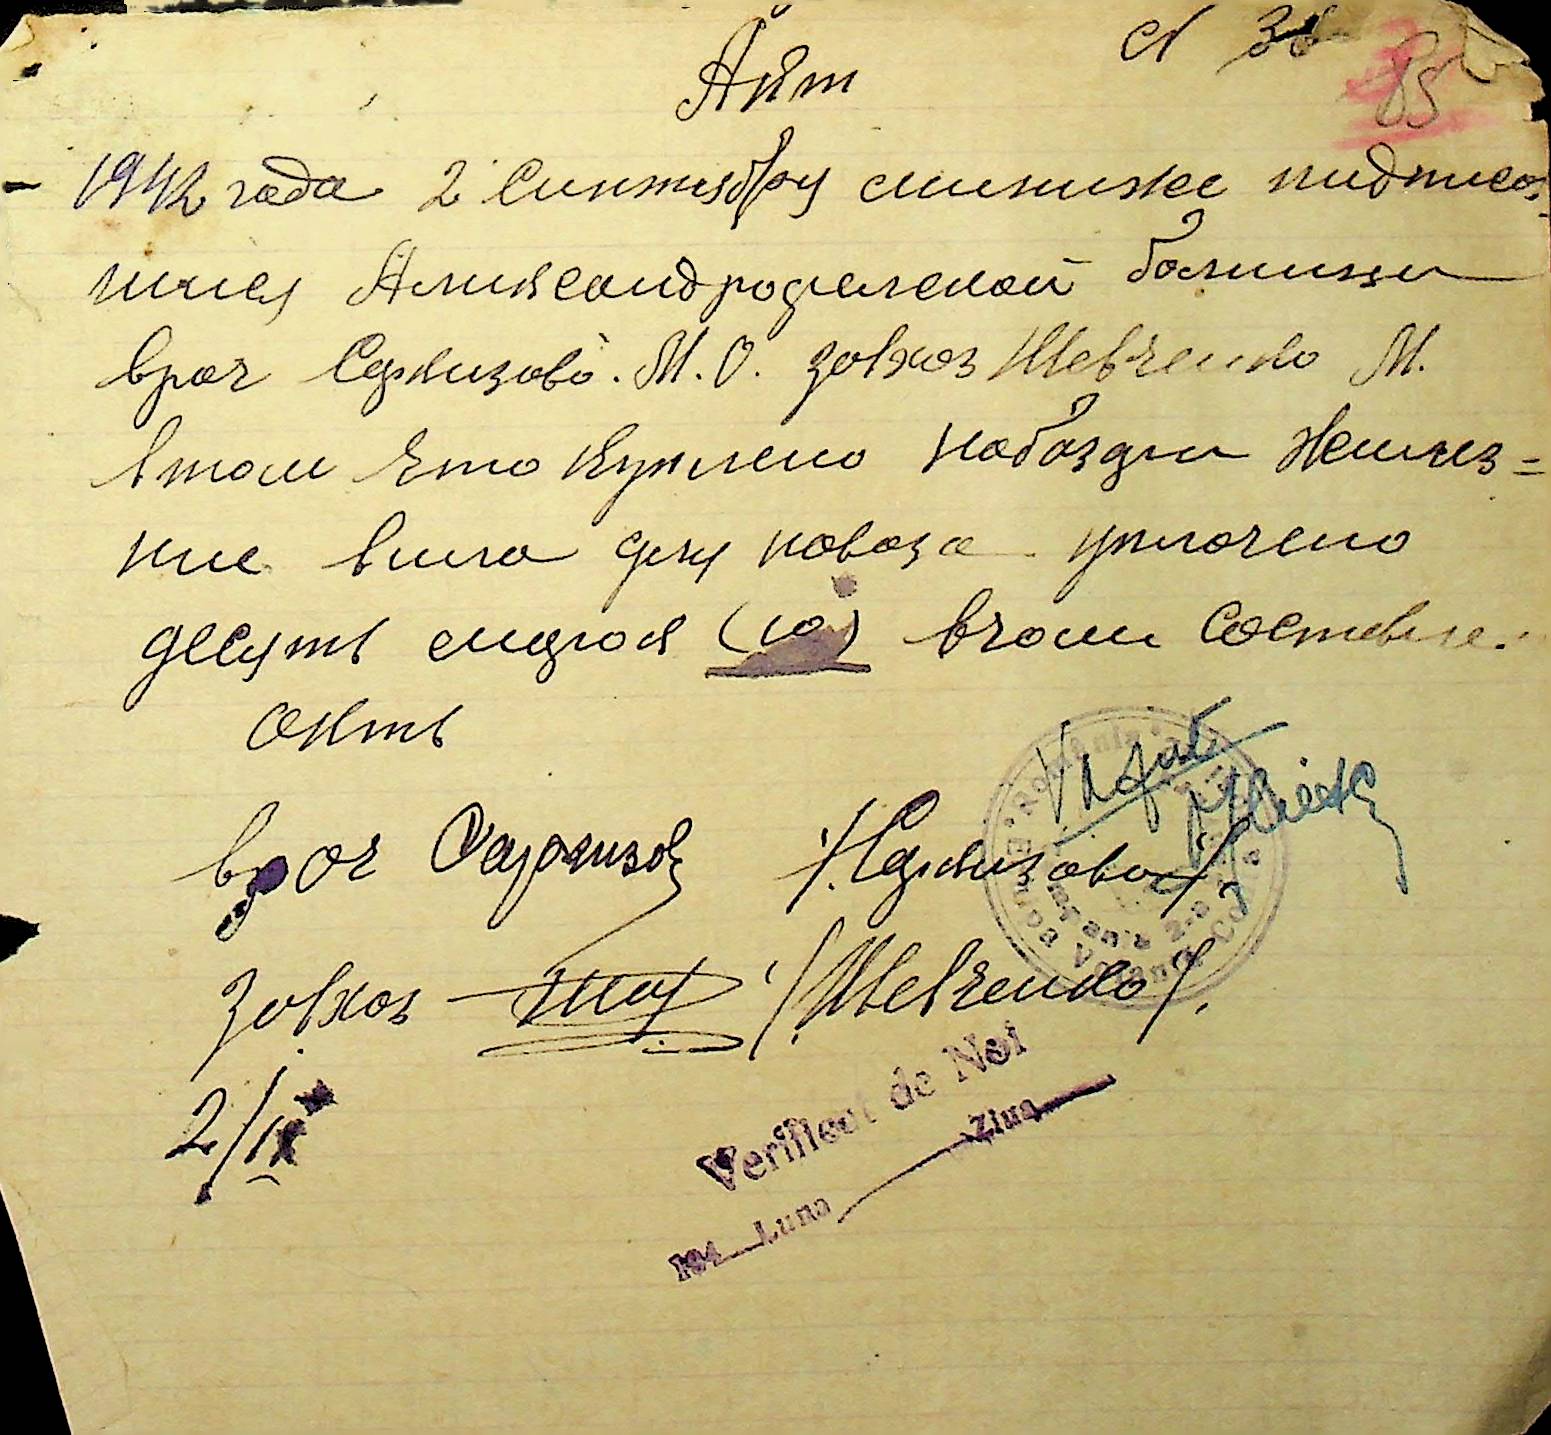 N 38
85
Акт
1942 года 2 Синтября мининже пидписа-
шися Александродарской болници
врач Саркизова. М. О. завхоз Шевченко М.
втом што куплено на базари желез=
ние вила для навоза уплочено
десять марок (10) вчом составле.
акть
врач Саркизов /Саркизова/
завхоз /Шевченко/.
2/IX
Verificat de Noi
194 Luna Ziua